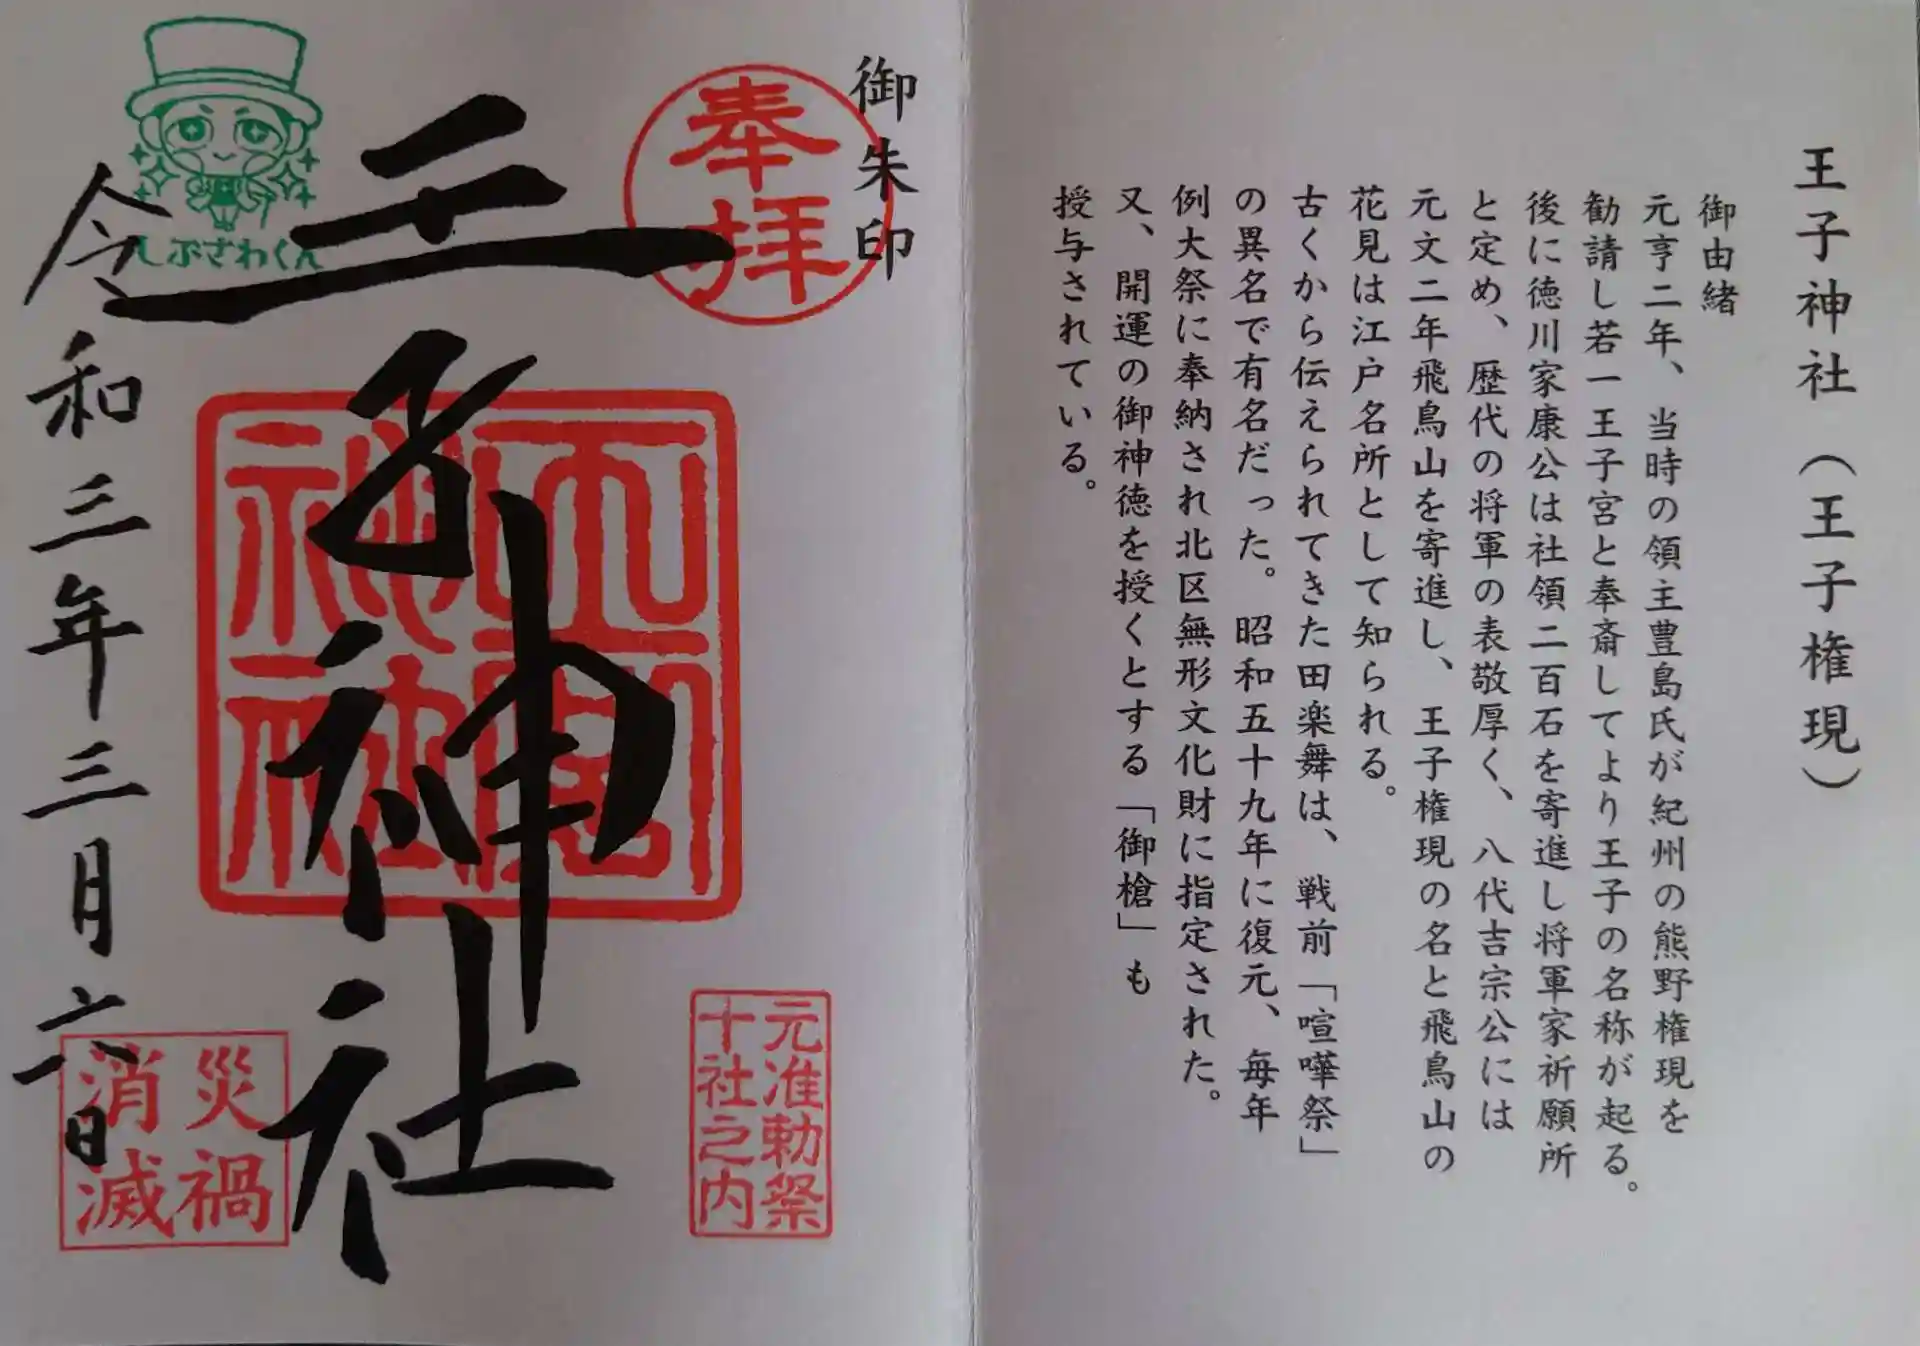 王子神社（王子権現）
御由緒
元亨二年、当時の領主豊島氏が紀州の熊野権現を
勧請し若一王子宮と奉斎してより王子の名称が起る。
後に徳川家康公は社領二百石を寄進し将軍家祈願所
と定め、歴代の将軍の表敬厚く、八代吉宗公には
元文二年飛鳥山を寄進し、王子権現の名と飛鳥山の
花見は江戸名所として知られる。
古くから伝えられてきた田楽舞は、戦前「喧嘩祭」
の異名で有名だった。昭和五十九年に復元、毎年
例大祭に奉納され北区無形文化財に指定された。
又、開運の御神徳を授くとする「御槍」も
授与されている。
御朱印
奉拝
元准勅祭
十社之内
王子神社
しぶさわくん
令和三年三月六日
災禍
消滅